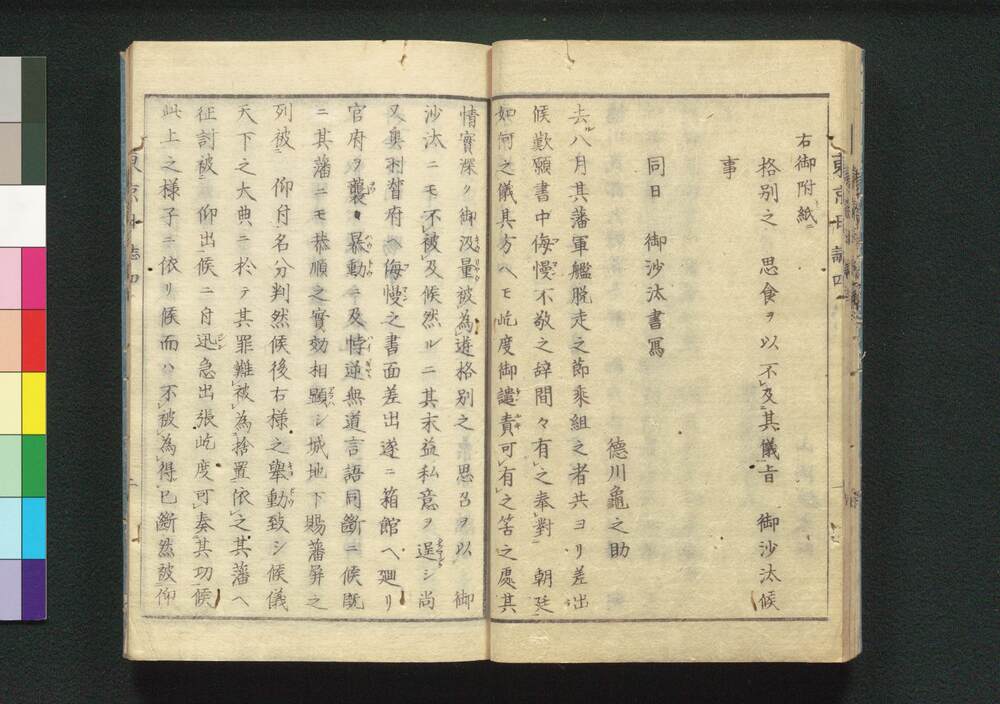 右御附紙ニ
格別之 思食ヲ以不及其儀旨 御沙汰候
事
同日 御沙汰書寫
徳川龜之助
去ル八月其藩軍艦脱走之節乘組之者共ヨリ差出
候歎願書中侮慢不敬之辭間々有之奉對 朝廷
如何之儀其方ヘモ屹度御譴責可有之筈之處其
情實深ク御汲量被為遊格別之 思召ヲ以 御
沙汰ニモ不被及候然ルニ其末益私意ヲ逞シ尚
又奥羽督府ヘ侮慢之書面差出遂ニ箱館ヘ廻リ
官府ヲ襲ヒ暴動ニ及悖逆無道言語同斷ニ候既
ニ其藩ニモ恭順之實効相顯シ城地下賜藩屏之
列被 仰付名分判然候後右様之擧動致シ候儀
天下之大典ニ於テ其罪難被為捨置依之其藩ヘ
征討被 仰出候ニ付迅急出張屹度可奏其功候
此上之様子ニ依リ候而ハ不被為得已斷然被仰
東京日誌四